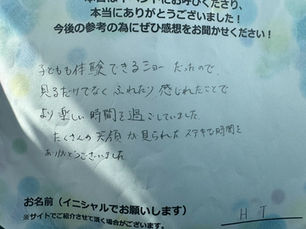 本日はイベントにお呼びくださり、
本当にありがとうございました！
今後の参考の為にぜひ感想をお聞かせください！
子どもも体験できるショーだったので、
見るだけでなく ふれたり 感じれたことで
より楽しい時間を過ごしていました。
たくさんの笑顔が見られたステキな時間を
ありがとうございました
お名前（イニシャルでお願いします）
※サイトでご紹介させて頂く場合がございます。
H T